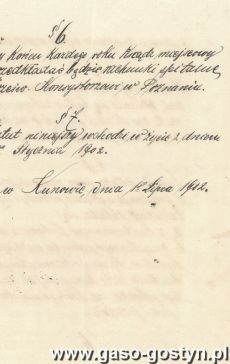 § 6.
Końcu każdego roku Rząd miejscowy
rzedkładać będzie rachunki szpitalne
Konsystorzowi w Poznaniu.
§ 7.
tut niniejszy wchodzi w życie z dniem
Stycznia 1902.
w Kunowie, dnia Lipca 1902.
www.gaso-gostyn.pl